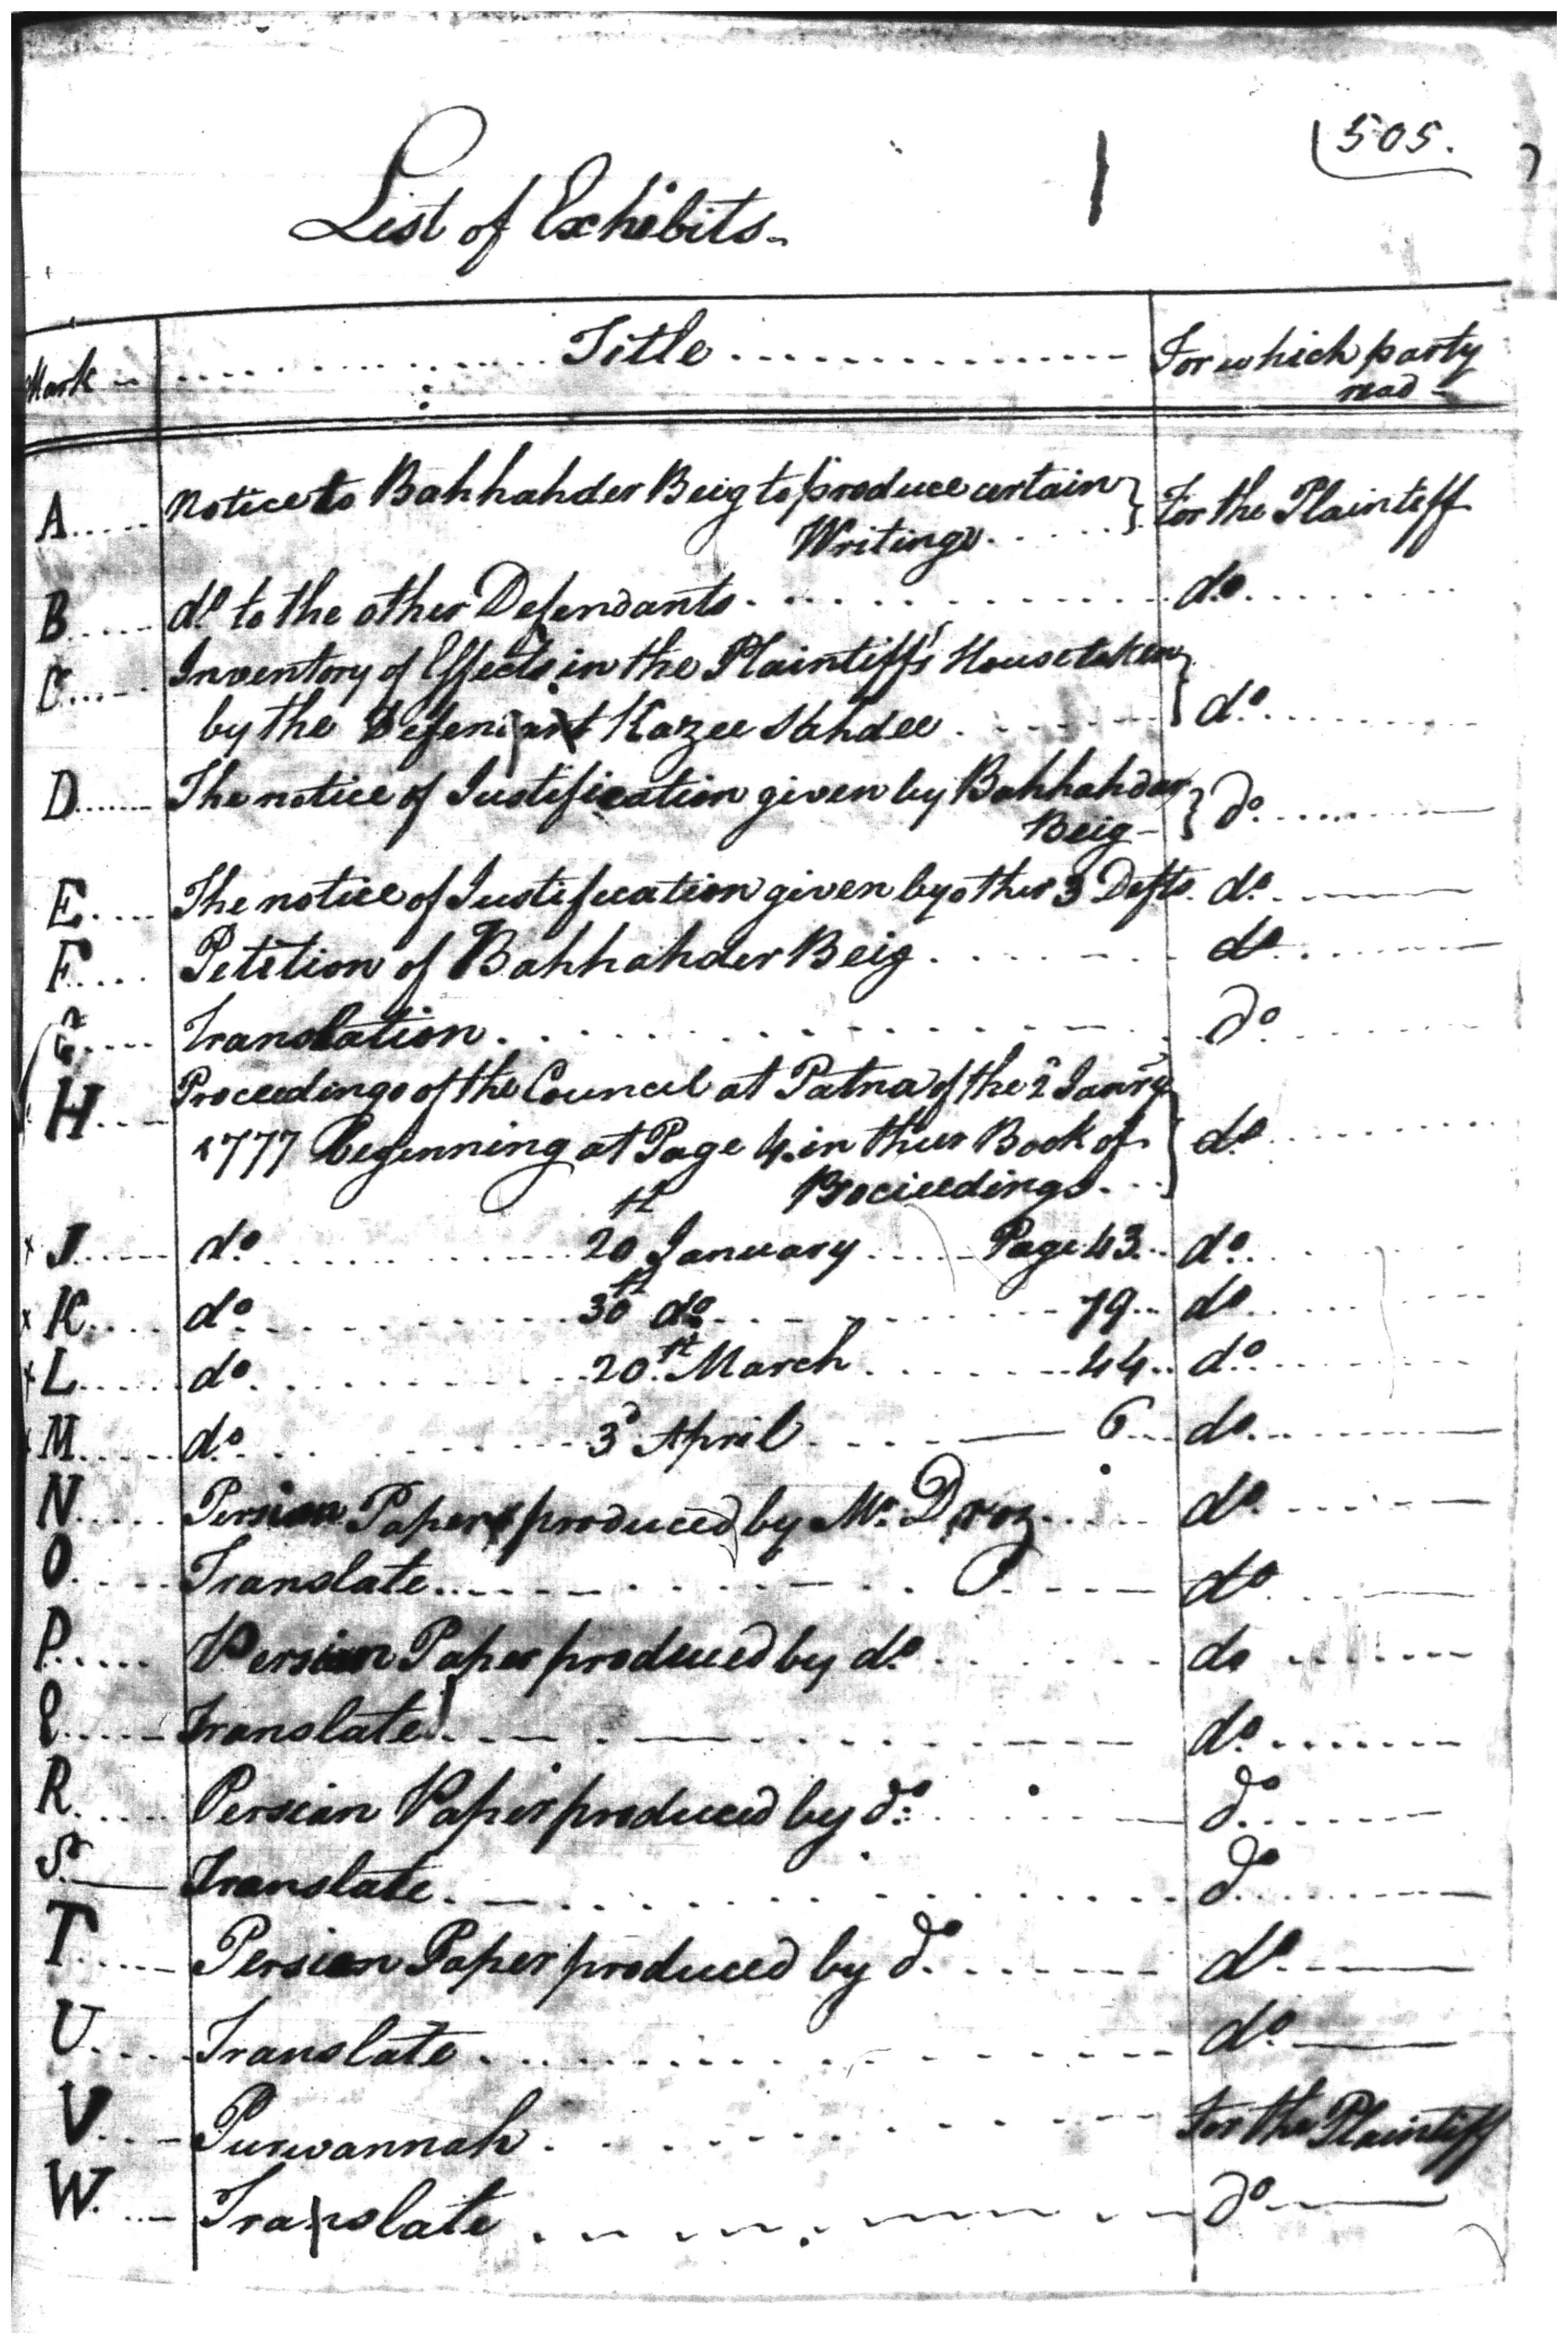 505.
List of Exhibits
Mark Title For which party
read
A Notice to Bahhahder Beig to produce certain For the Plaintiff
Writings
B do to the other Defendants do
C Inventory of Effects in the Plaintiff's House taken
by the Defendant Kazee Sahdee do
D The notice of Justification given by Bahhahder do
Beig
E The notice of Justification given by other 3 Defts. do
F Petition of Bahhahder Beig do
G Translation do
H Proceedings of the Council at Patna of the 2d Janry
1777 beginning at Page 4. in their Book of do
Proceedings
J do 20th January Page 43 do
K do 30th do 79 do
L do 20th March 44 do
M do 3d April 6 do
N Persian Paper produced by Mr. Droz do
O Translate do
P Persian Paper produced by do do
Q Translate do
R Persian Paper produced by do do
S Translate do
T Persian Paper produced by do do
U Translate do
V Purwannah For the Plaintiff
W Translate do